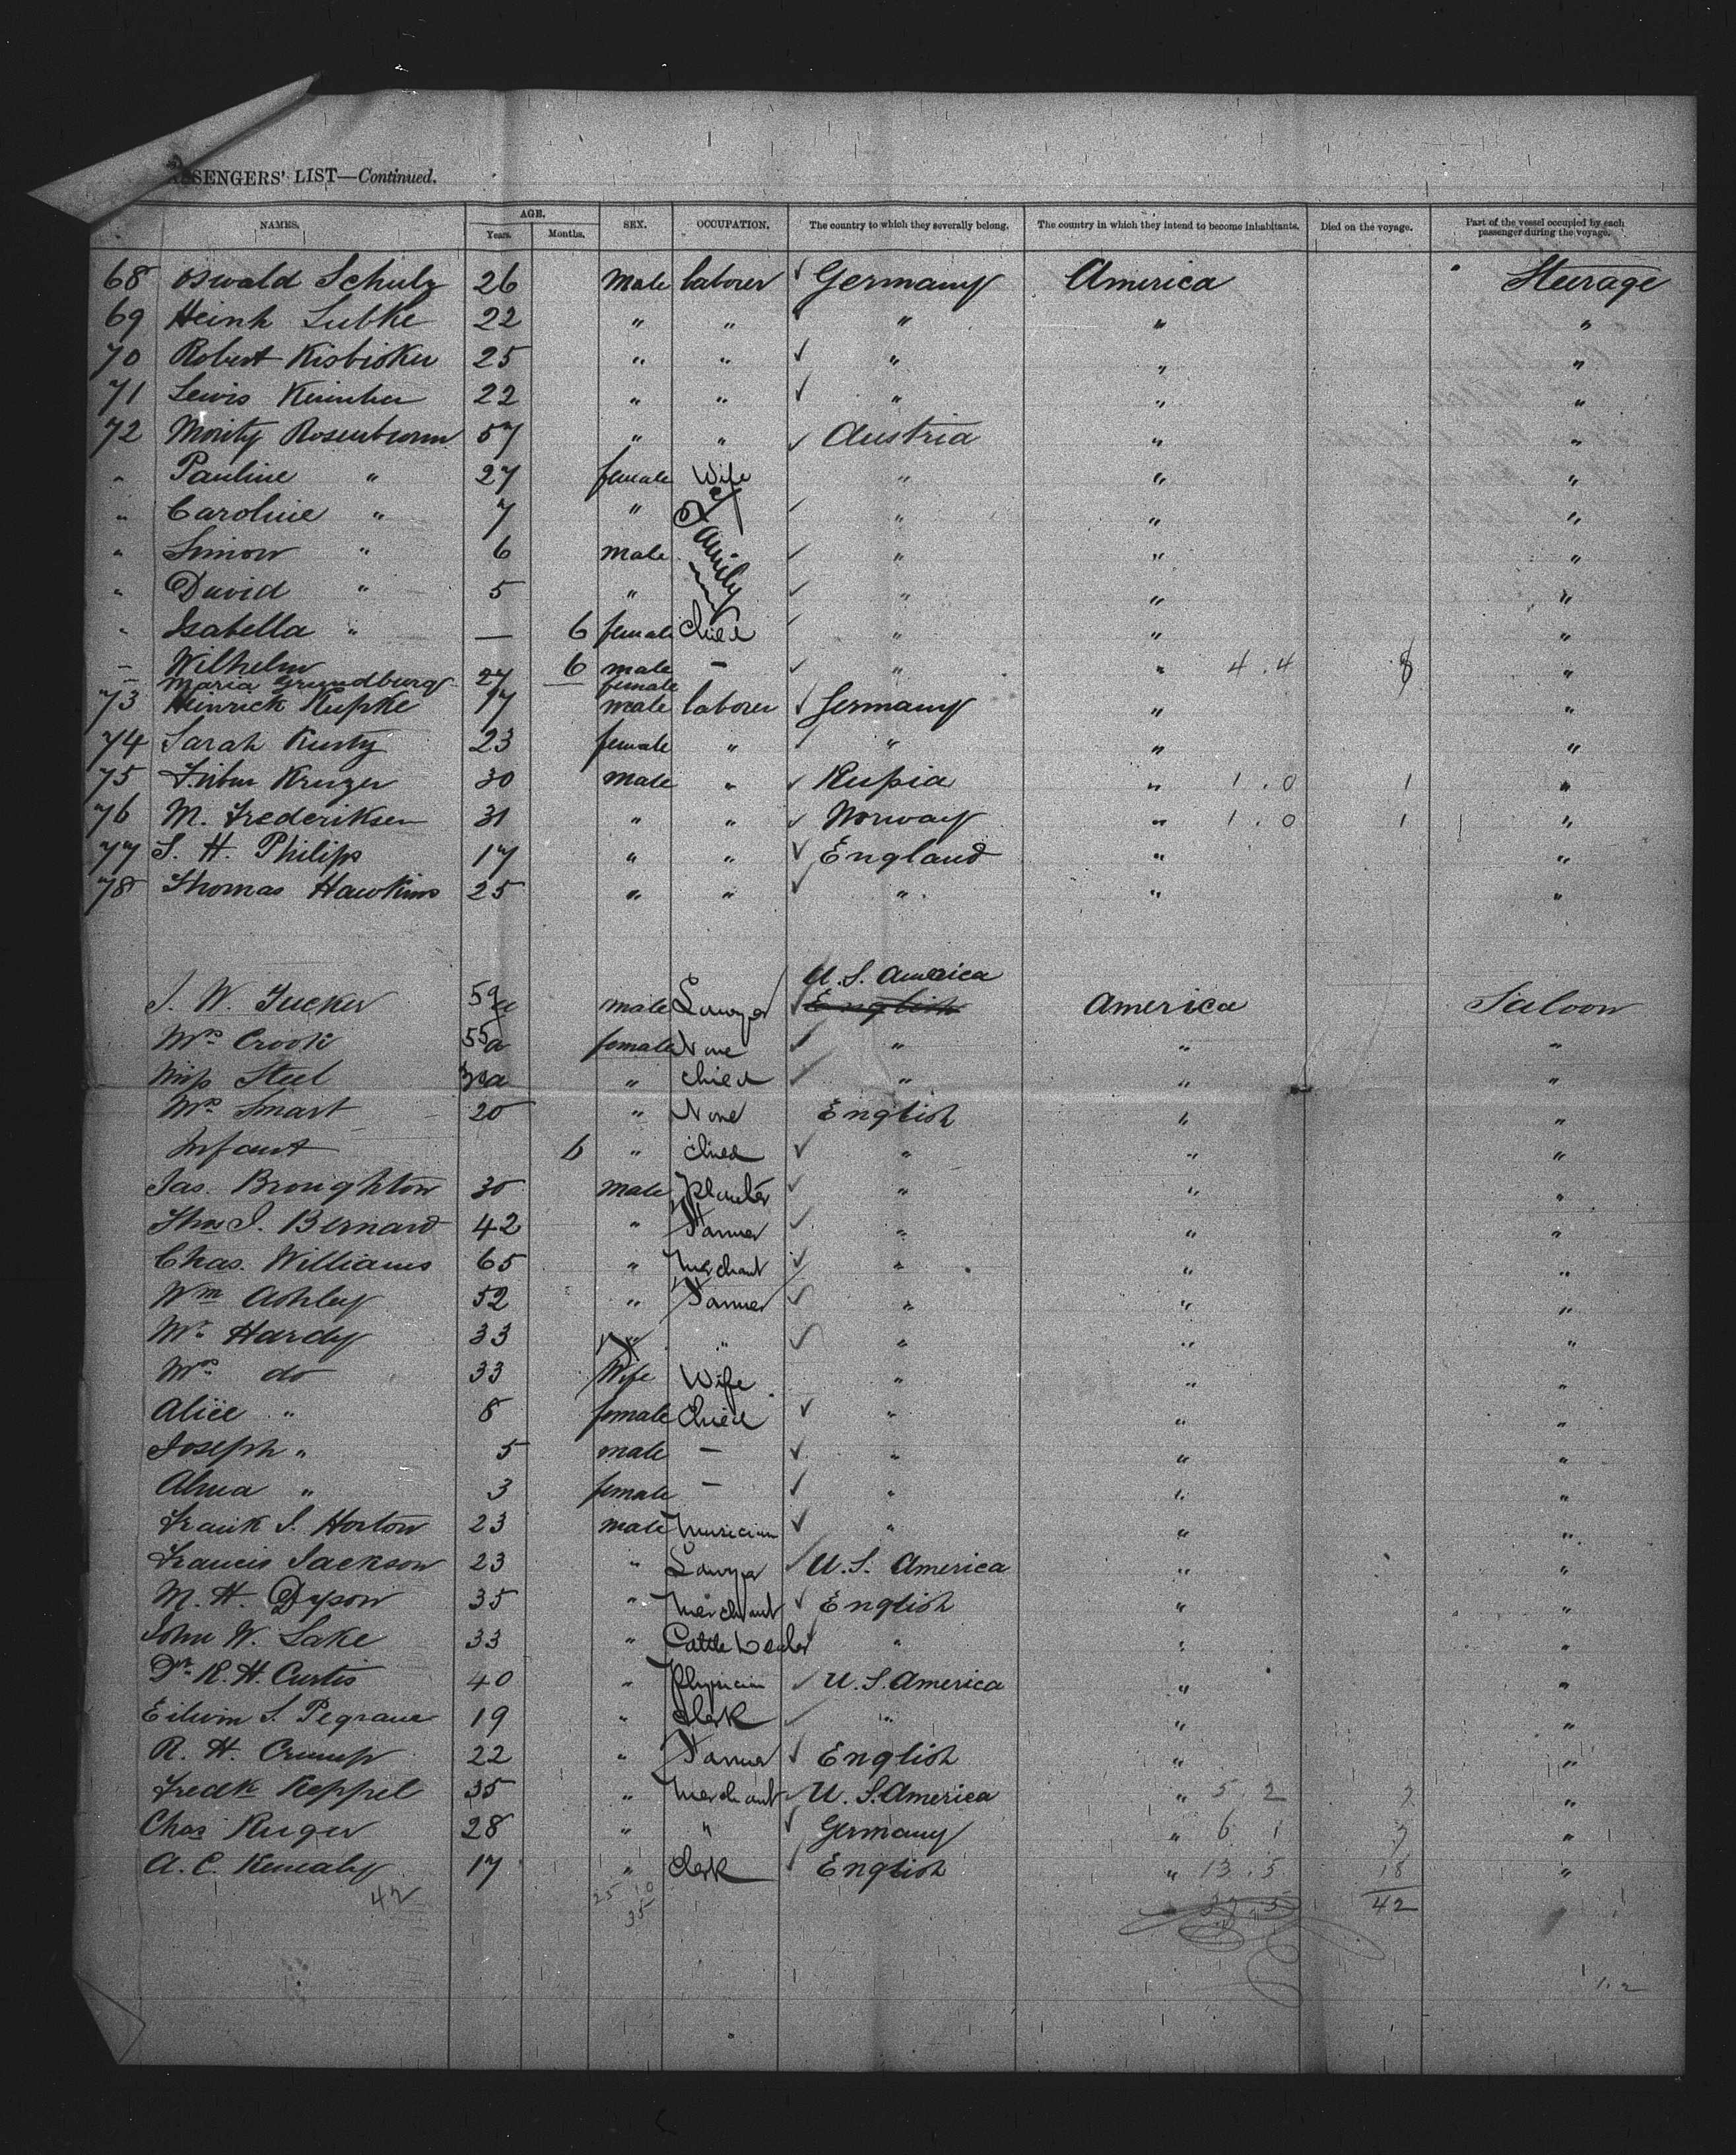 PASSENGERS' LIST—Continued.
NAMES. AGE. Years. Months. SEX. OCCUPATION. The country to which they severally belong. The country in which they intend to become inhabitants. Died on the voyage. Part of the vessel occupied by each passenger during the voyage.
68 Oswald Schulz 26 Male laborer ✓ Germany America Steerage
69 Heinh Lubke 22 " " ✓ " " "
70 Robert Kisbisker 25 " " ✓ " " "
71 Lewis 22 " " ✓ " " "
72 Moritz 57 " " ✓ Austria " "
" Pauline " 27 female Wife " " "
" Caroline " 7 " Family ✓ " " "
" Simon " 6 male ✓ " " "
" David " 5 " ✓ " " "
" Isabella " — 6 female child ✓ " " "
– Wilhelm 6 male – ✓ " " 4 . 4 8 "
– Maria Grundburg 27 — female
73 Heinrick Kupke 17 male laborer ✓ Germany " "
74 Sarah Kusty 23 female " ✓ " " "
75 Kruger 30 male " ✓ Rußia " 1 . 0 1 "
76 M. Frederiksen 31 " " ✓ Norway " 1 . 0 1 "
77 S. H. Philips 17 " " ✓ England " "
78 Thomas Hawkins 25 " " ✓ " " "
U. S. America
J. W. Tucker 59 male Lawyer ✓ English America Saloon
Mrs Crook 55 a female None ✓ " " "
Miss Steel a " child ✓ " " "
Mrs Smart 20 " None English " "
Infant 6 " child ✓ " " "
Jas. Broughton 30 male planter ✓ " " "
Thos J. Bernard 42 " Farmer ✓ " " "
Chas. Williams 65 " Merchant ✓ " " "
Wm Ashley 52 " Farmer ✓ " " "
Mr. Hardy 33 " ✓ " " "
Mrs do 33 Wife Wife " " "
Alice " 8 female child ✓ " " "
Joseph " 5 male – ✓ " " "
Alma " 3 female – ✓ " " "
Frank S. Horton 23 male Musician ✓ " " "
Francis Jackson 23 " Lawyer ✓ U. S. America " "
M. H. Dyson 35 " Merchant ✓ English " "
John W. Lake 33 " Cattle Dealer " " "
Dr. R. H. Curtis 40 " Physician ✓ U. S. America " "
Edwin S. Pegrane 19 " Clerk ✓ " " "
R. H. Crump 22 " Farmer ✓ English " "
Fredk Keppel 35 " Merchant ✓ U. S. America " 5 2 7 "
Chas Ruger 28 " " ✓ Germany " 6 1 7 "
A. C. Kenealy 17 " Clerk ✓ English " 13 . 5 18 "
42 25 10 42
35
1. 2